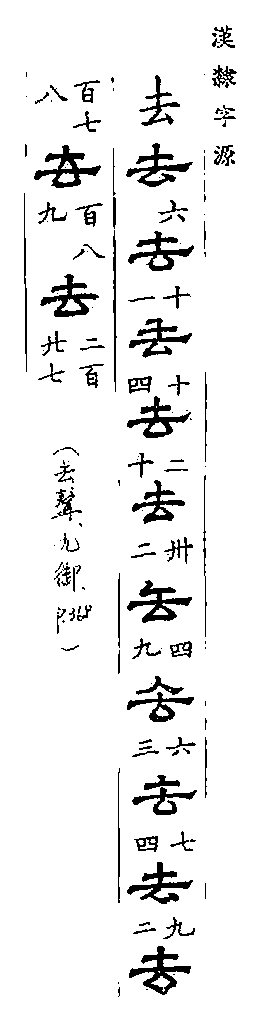 漢隸字源
去去六去十一去十四去二十去卅二去四九去六三去七四去九二去
百七八去百八九去二百廿七
(去聲、九御、P.368)